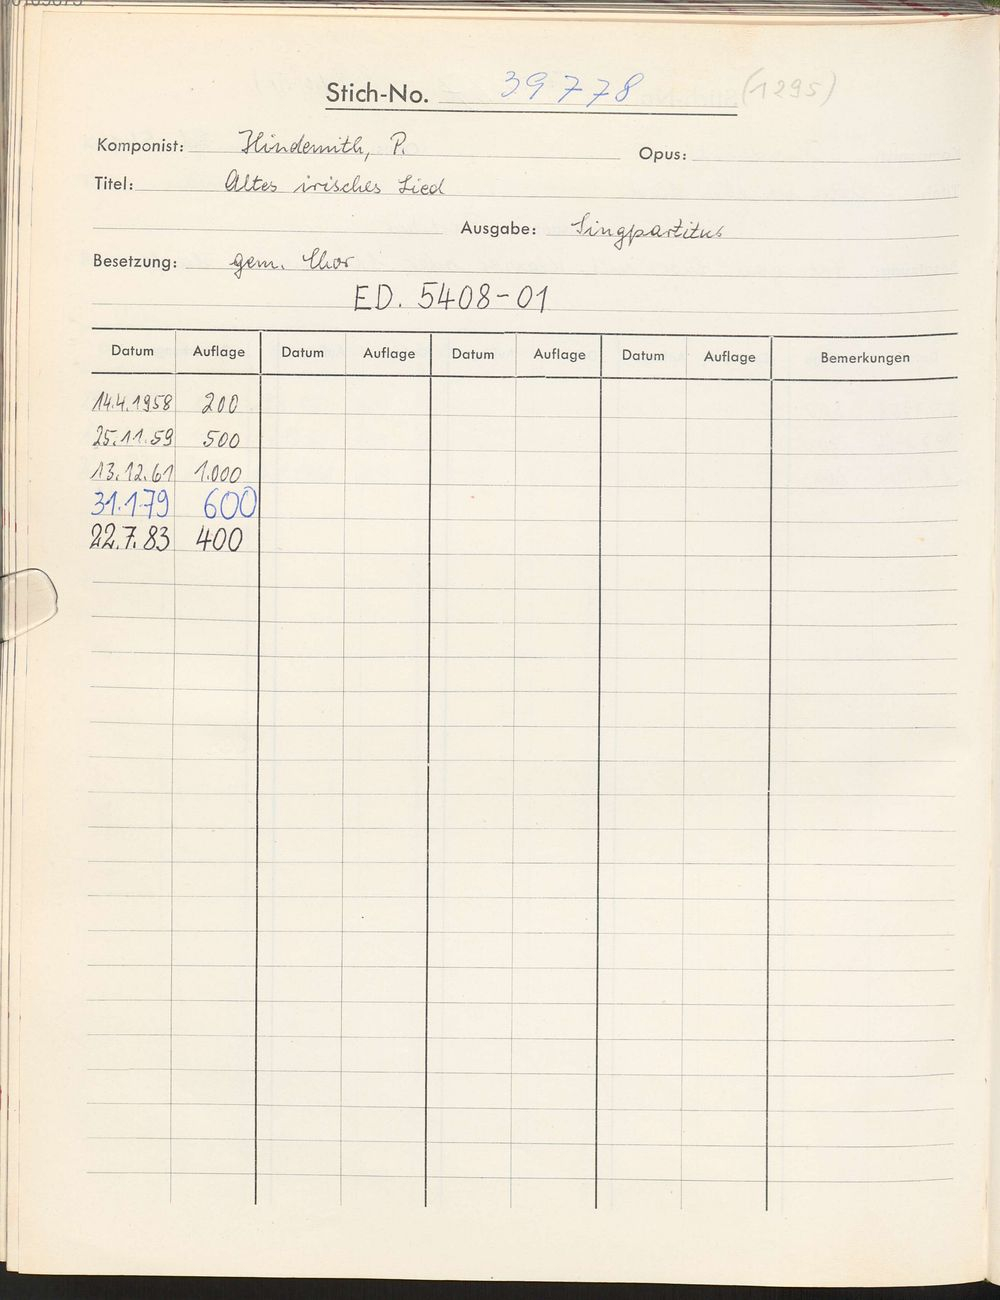 Stich-No. 39778 (1295)
Komponist: Hindemith, P. Opus:
Titel: Altes irisches Lied
Ausgabe: Singpartitur
Besetzung: gem. Chor
ED. 5408-01
Datum Auflage Datum Auflage Datum Auflage Datum Auflage Bemerkungen
14.4.1958 200
25.11.59 500
13.12.61 1.000
31.1.79 600
22.7.83 400